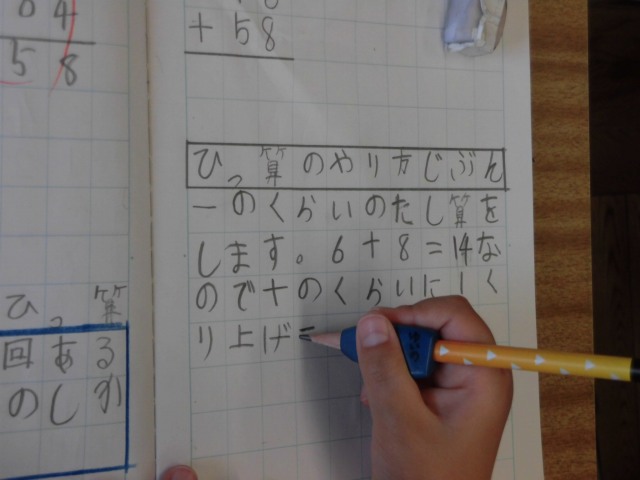 4
58
+ 58
ひっ算のやり方じぶん
一のくらいのたし算を
します。6+8=14な
ので十のくらいに1く
り上げ
ひっ算
回ある
のしか